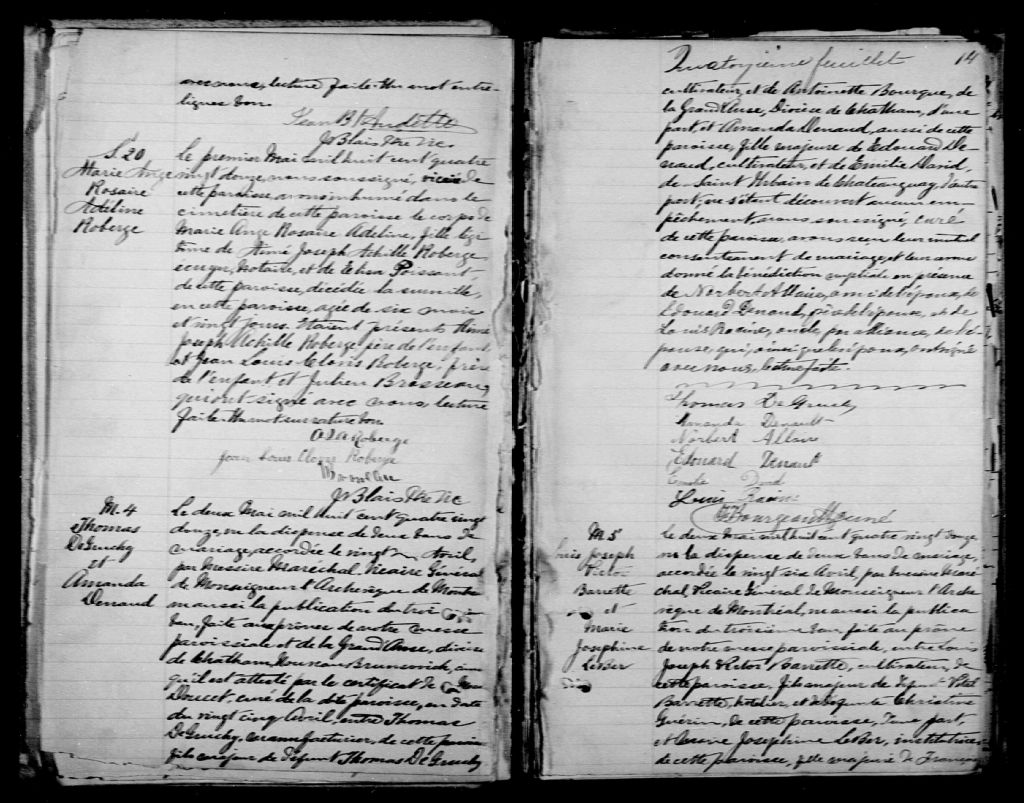 avec nous, lecture faite. Un mot entre-
lignes bon.
Jean Bte
J V Blais Ptre Vic.
S. 20
Marie Ange
Rosaire
Adeline
Roberge
Le premier Mai mil huit cent quatre
vingt douze, nous soussigné, vicaire de
cette paroisse, avons inhumé dans le
cimetière de cette paroisse le corps de
Marie Ange Rosaire Adeline, fille légi
time de Aimé Joseph Achille Roberge
écuyer, notaire, et de Eliza Poissant
de cette paroisse, décédée la surveille,
en cette paroisse, agée de six mois
et vingt jours. Etaient présents Aimé
Joseph Achille Roberge père de l'enfant
et Jean Louis Clovis Roberge, frère
de l'enfant et Julien Brosseau,
qui ont signé avec nous, lecture
faite. Un mot sur rature bon.
A J A Roberge
Jean Louis Clovis Roberge
J V Blais Ptre Vic
M. 4
Thomas
DeGruchy
et
Amanda
Denaud
Le deux Mai mil huit cent quatre vingt
douze, vu la dispense de deux bans de
mariage, accordée le vingt Avril,
par Messire Maréchal, Vicaire Général
de Monseigneur l'Archevêque de Montréal
vu aussi la publication du troi
ban, faite au prône de notre messe
paroissiale et de la Grand'Anse, diocèse
de Chatham, Nouveau Brunswick, ainsi
qu'il est attesté par le certificat de
Doucet, curé de la dite paroisse, en date
du vingt cinq Avril, entre Thomas
DeGruchy, manufacturier, de cette paroisse
fils majeur de Défunt Thomas DeGruchy
Quatorzième feuillet 14
cultivateur, et de Antoinette Bourque, de
la Grand'Anse, Diocèse de Chatham, d'une
part, et Amanda Denaud, aussi de cette
paroisse, fille majeure de Edouard De-
naud, cultivateur, et de Emilie David,
de Saint Urbain de Chateauguay, d'autre
part, ne s'étant découvert aucun em-
pêchement, nous soussigné, curé
de cette paroisse, avons reçu leur mutuel
consentement de mariage, et leur avons
donné la bénédiction nuptiale en présence
de Norbert Allaire, ami de l'époux, de
Edouard Denaud, père de l'épouse, et de
Louis Racine, oncle, par alliance, de l'é-
pouse, qui, ainsi que les époux, ont signé
avec nous, lecture faite.
Thomas De Gruchy
Amanda Denault
Norbert Allaire
Edouard Denault
Louis Racine
Bourgeault curé
M 5
Louis Joseph
Victor
Barrette
et
Marie
Josephine
LeBer
Le deux Mai mil huit cent quatre vingt douze
vu la dispense de deux bans de mariage,
accordée le vingt six Avril, par Messire Maré
chal, Vicaire Général de Monseigneur l'Arche
vêque de Montréal, vu aussi la publica
tion du troisième ban faite au prône
de notre messe paroissiale, entre Louis
Joseph Victor Barrette, cultivateur, de
cette paroisse, fils majeur de défunt
Barrette, hôtelier, et de défunte Christine
Guérin, de cette paroisse, d'une part,
et Marie Josephine LeBer, institutrice
de cette paroisse, fille majeure de François